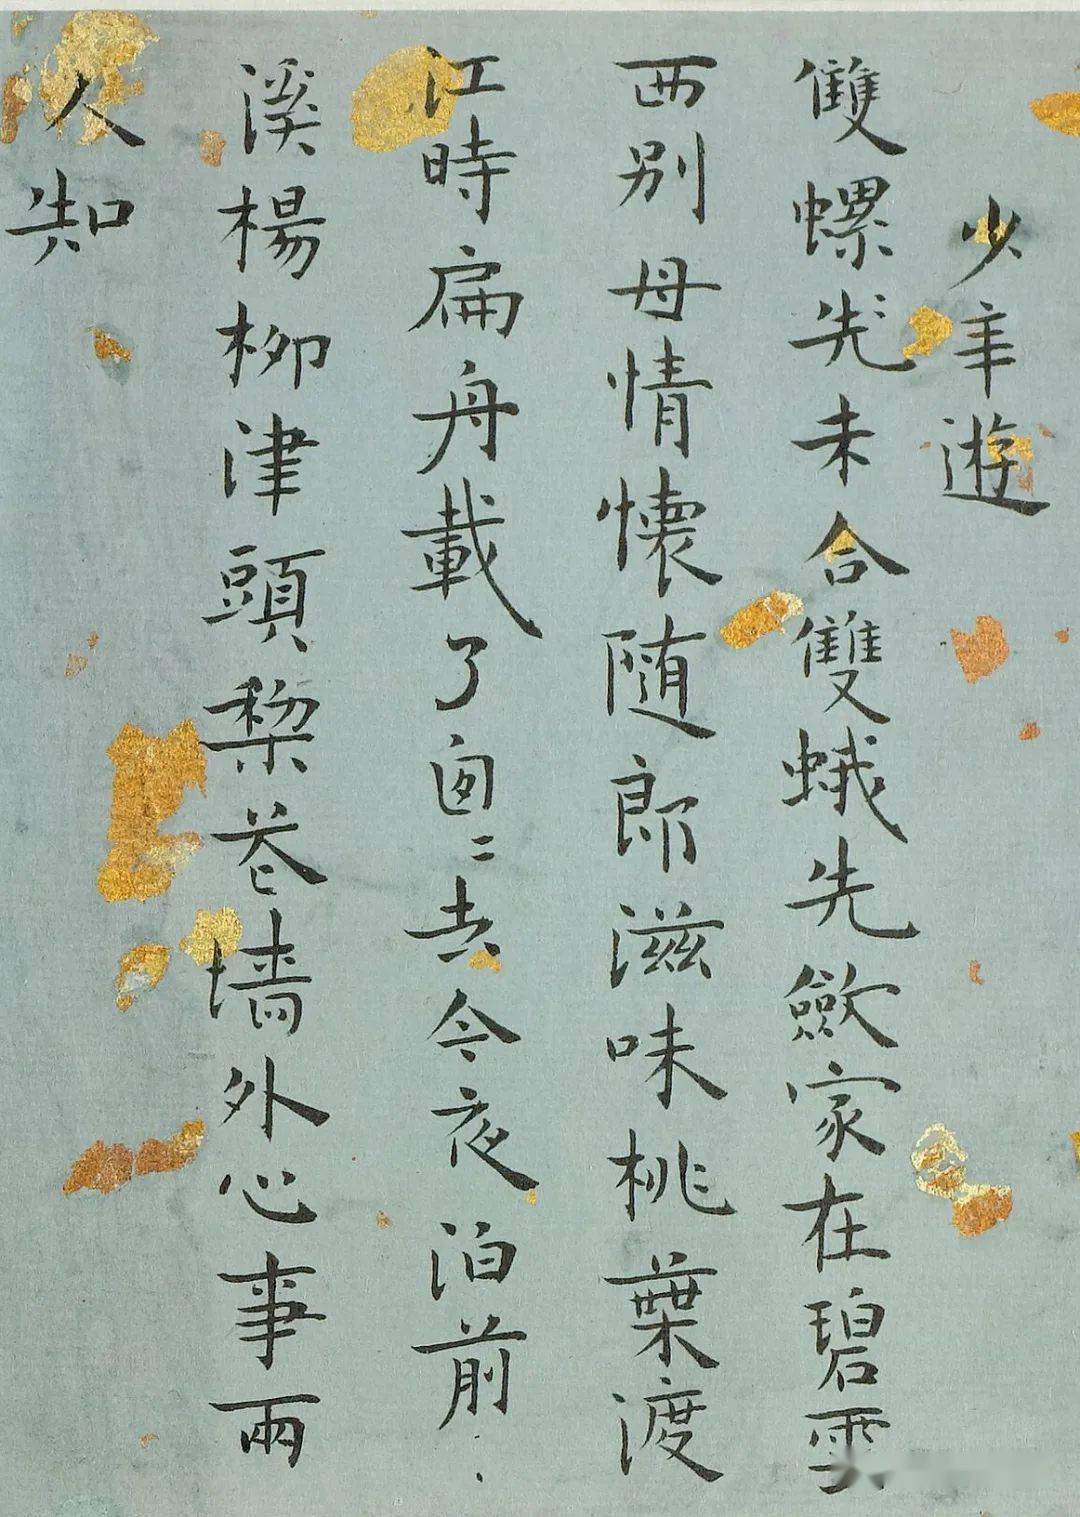 少年遊
雙螺先未合雙蛾先歛家在碧雲
西別母情懷隨郎滋味桃葉渡
江時扁舟載了囪〻去今夜泊前
溪楊柳津頭棃花墻外心事兩
人知